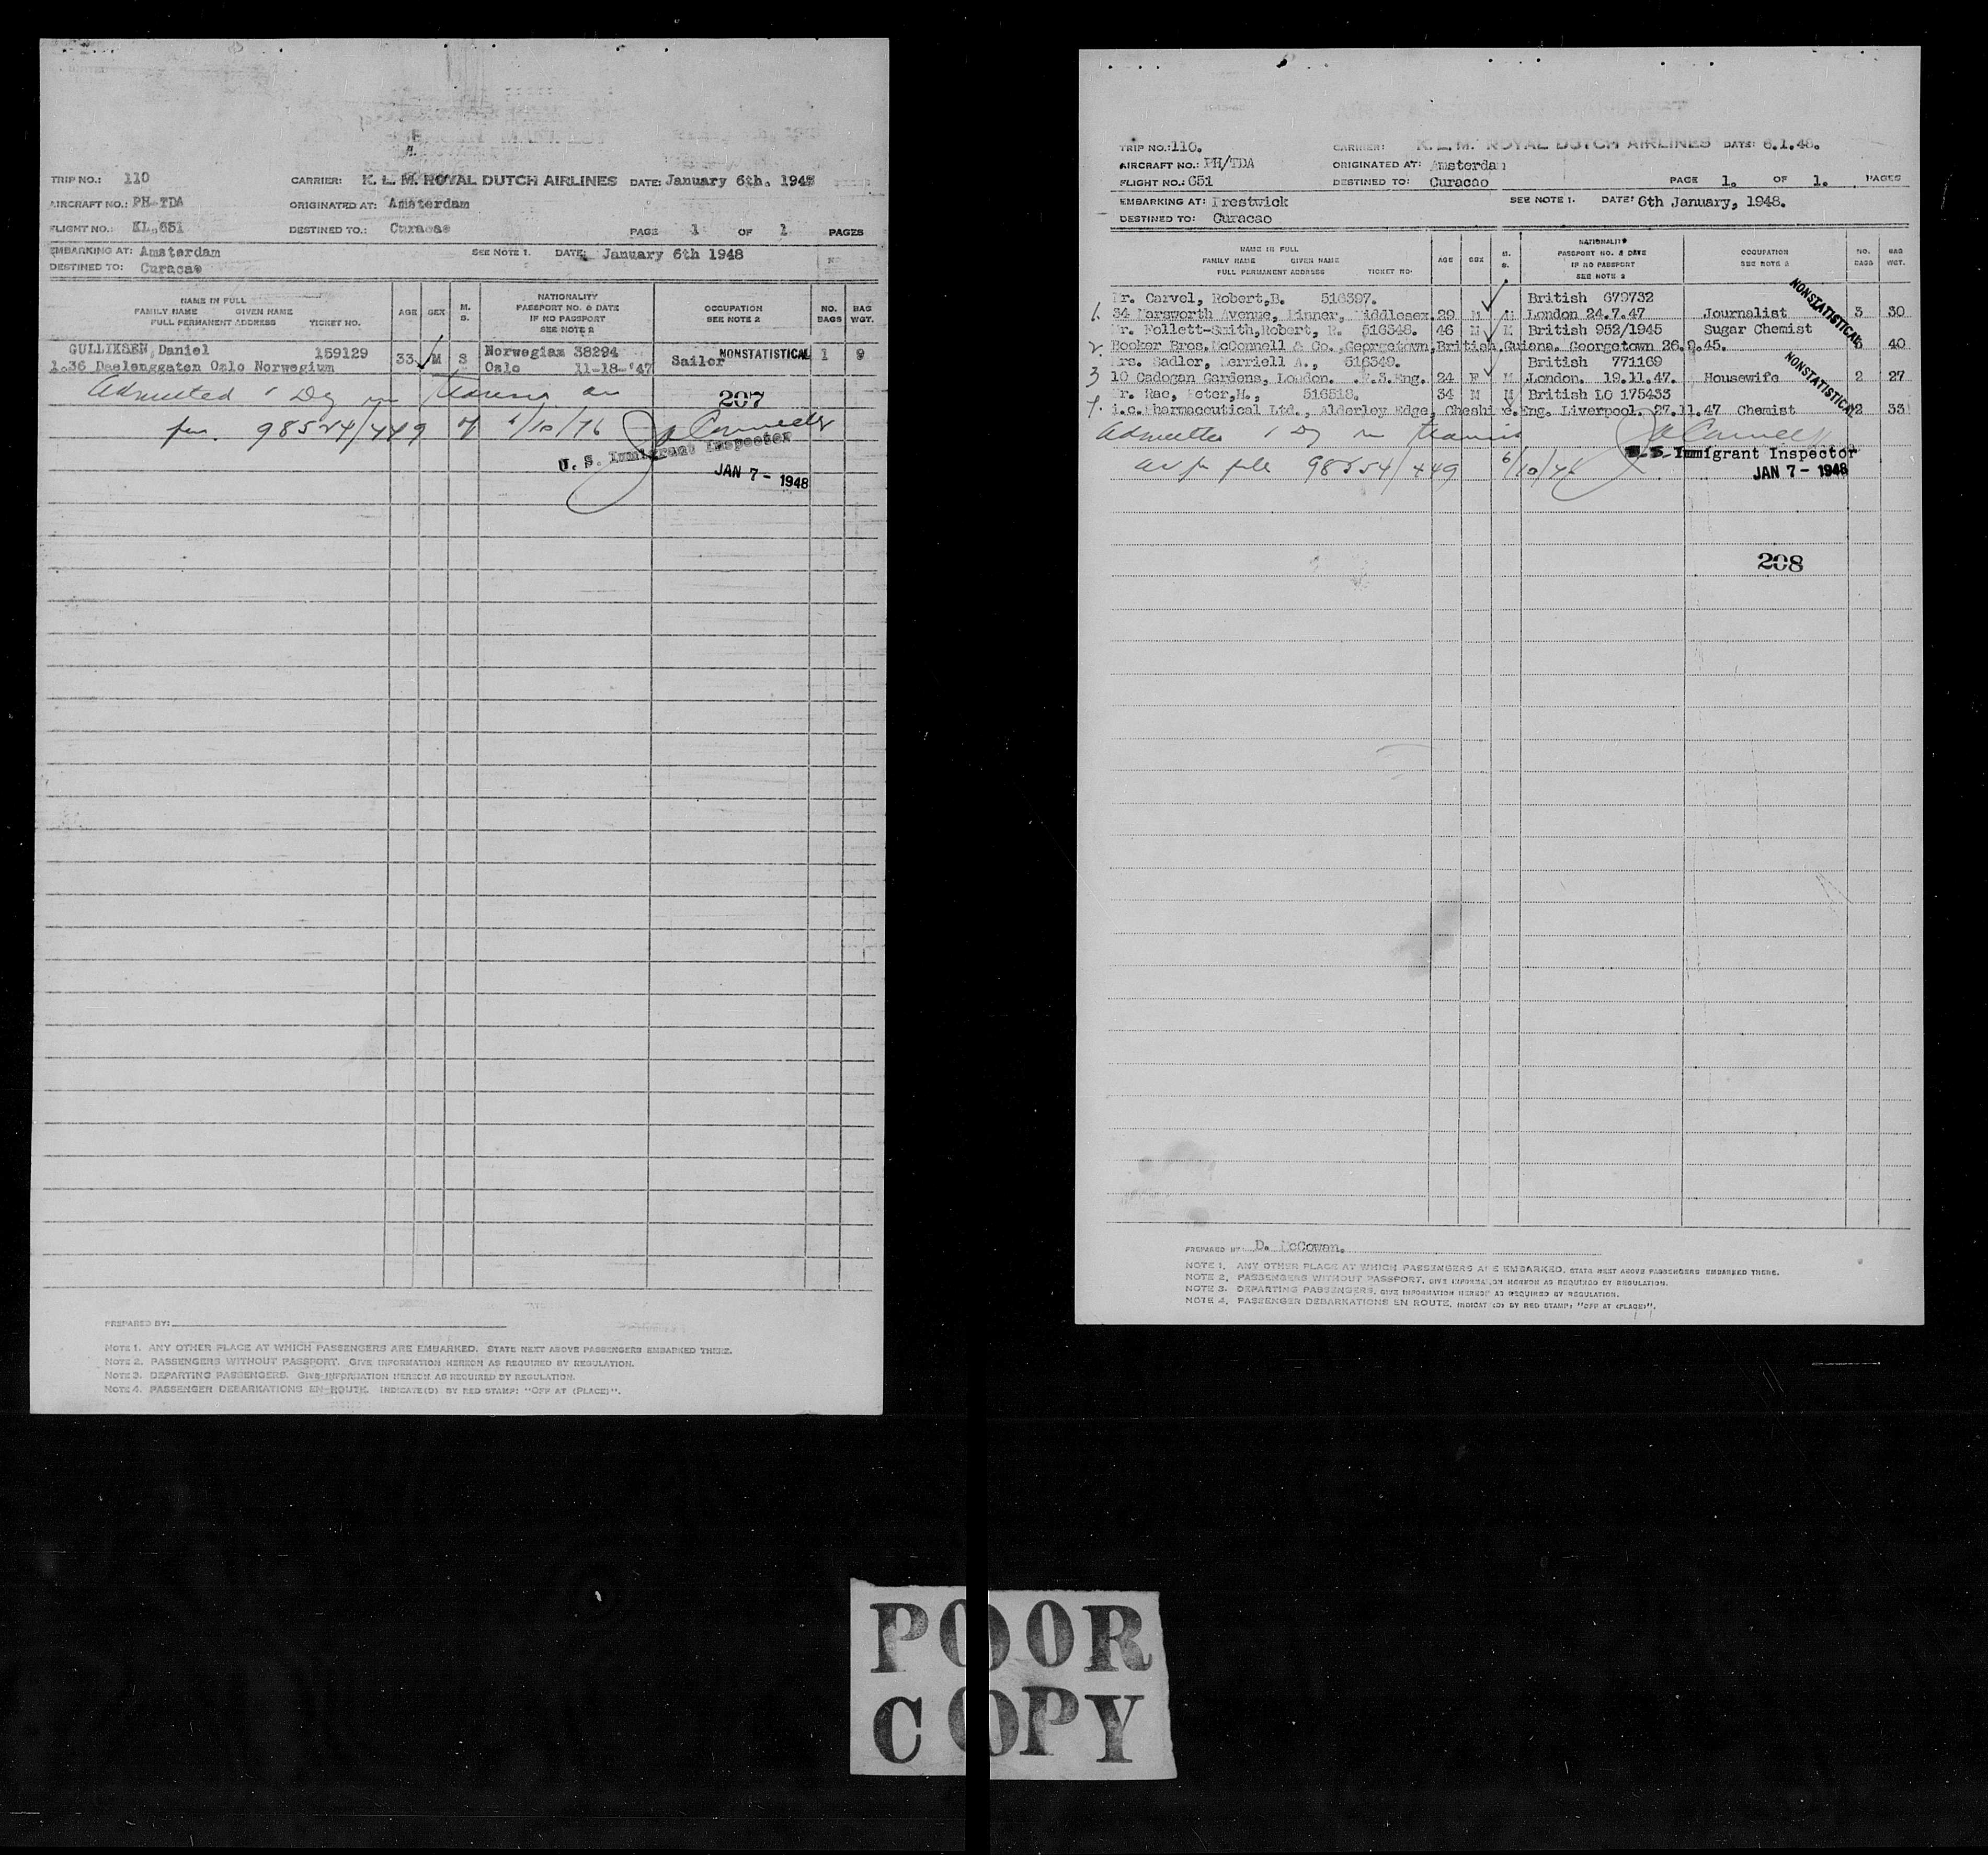 TRIP NO.: 110 CARRIER: K. L. M. ROYAL DUTCH AIRLINES DATE: January 6th. 1948
AIRCRAFT NO.: PH-TDA ORIGINATED AT: Amsterdam
FLIGHT NO.: KL.651 DESTINED TO.: Curacao PAGE 1 OF 1 PAGES
EMBARKING AT: Amsterdam SEE NOTE 1. DATE: January 6th 1948
DESTINED TO: Curacao
NAME IN FULL
FAMILY NAME GIVEN NAME
FULL PERMANENT ADDRESS TICKET NO.
AGE SEX M. S.
NATIONALITY
PASSPORT NO. & DATE
IF NO PASSPORT
SEE NOTE 2
OCCUPATION
SEE NOTE 2
NO. BAGS
BAG WGT.
GULLIKSEN, Daniel 159129 33 M S Norwegian 38294 Sailor NONSTATISTICAL 1 9
1.36 Daelenggaten Oslo Norwegium Oslo 11-18-'47
Admitted 1 Day in transit
207
98524/449 of 6/10/46
U. S. Immigrant Inspector
JAN 7 - 1948
PREPARED BY:
NOTE 1. ANY OTHER PLACE AT WHICH PASSENGERS ARE EMBARKED. STATE NEXT ABOVE PASSENGERS EMBARKED THERE.
NOTE 2. PASSENGERS WITHOUT PASSPORT. GIVE INFORMATION HEREON AS REQUIRED BY REGULATION.
NOTE 3. DEPARTING PASSENGERS. GIVE INFORMATION HEREON AS REQUIRED BY REGULATION.
NOTE 4. PASSENGER DEBARKATIONS EN ROUTE. INDICATE(D) BY RED STAMP: "OFF AT (PLACE)".
TRIP NO.: 110. CARRIER: K. L. M. ROYAL DUTCH AIRLINES DATE: 6.1.48.
AIRCRAFT NO.: PH/TDA ORIGINATED AT: Amsterdam
FLIGHT NO.: 651 DESTINED TO: Curacao PAGE 1. OF 1. PAGES
EMBARKING AT: Prestwick SEE NOTE 1. DATE: 6th January, 1948.
DESTINED TO: Curacao
NAME IN FULL
FAMILY NAME GIVEN NAME
FULL PERMANENT ADDRESS TICKET NO.
AGE SEX M. S.
NATIONALITY
PASSPORT NO. & DATE
IF NO PASSPORT
SEE NOTE 2
OCCUPATION
SEE NOTE 2
NO. BAGS
BAG WGT.
Mr. Carvel, Robert,B. 516397. British 679732
1. 34 Marsworth Avenue, Pinner, Middlesex. 29 M M London 24.7.47 Journalist 3 30
Mr. Follett-Smith,Robert, R. 516348. 46 M M British 952/1945 Sugar Chemist
2. Booker Bros. McConnell & Co.,Georgetown,British Guiana. Georgetown 26.9.45. 40
Mrs. Sadler, Merriell A., 516349. British 771169
3 10 Cadogan Gardens, London. Eng. 24 F M London. 19.11.47. Housewife 2 27
Mr. Rae, Peter,M., 516518. 34 M M British LO 175433
4. i.c. Pharmaceutical Ltd., Alderley Edge, Cheshire.Eng. Liverpool. 27.11.47 Chemist 2 33
NONSTATISTICAL
NONSTATISTICAL
Admitted 1 Day in transit
6/10/46
U. S. Immigrant Inspector
JAN 7 - 1948
208
PREPARED BY: D. McCowan.
NOTE 1. ANY OTHER PLACE AT WHICH PASSENGERS ARE EMBARKED. STATE NEXT ABOVE PASSENGERS EMBARKED THERE.
NOTE 2. PASSENGERS WITHOUT PASSPORT. GIVE INFORMATION HEREON AS REQUIRED BY REGULATION.
NOTE 3. DEPARTING PASSENGERS. GIVE INFORMATION HEREON AS REQUIRED BY REGULATION.
NOTE 4. PASSENGER DEBARKATIONS EN ROUTE. INDICATE(D) BY RED STAMP: "OFF AT (PLACE)".
POOR
COPY